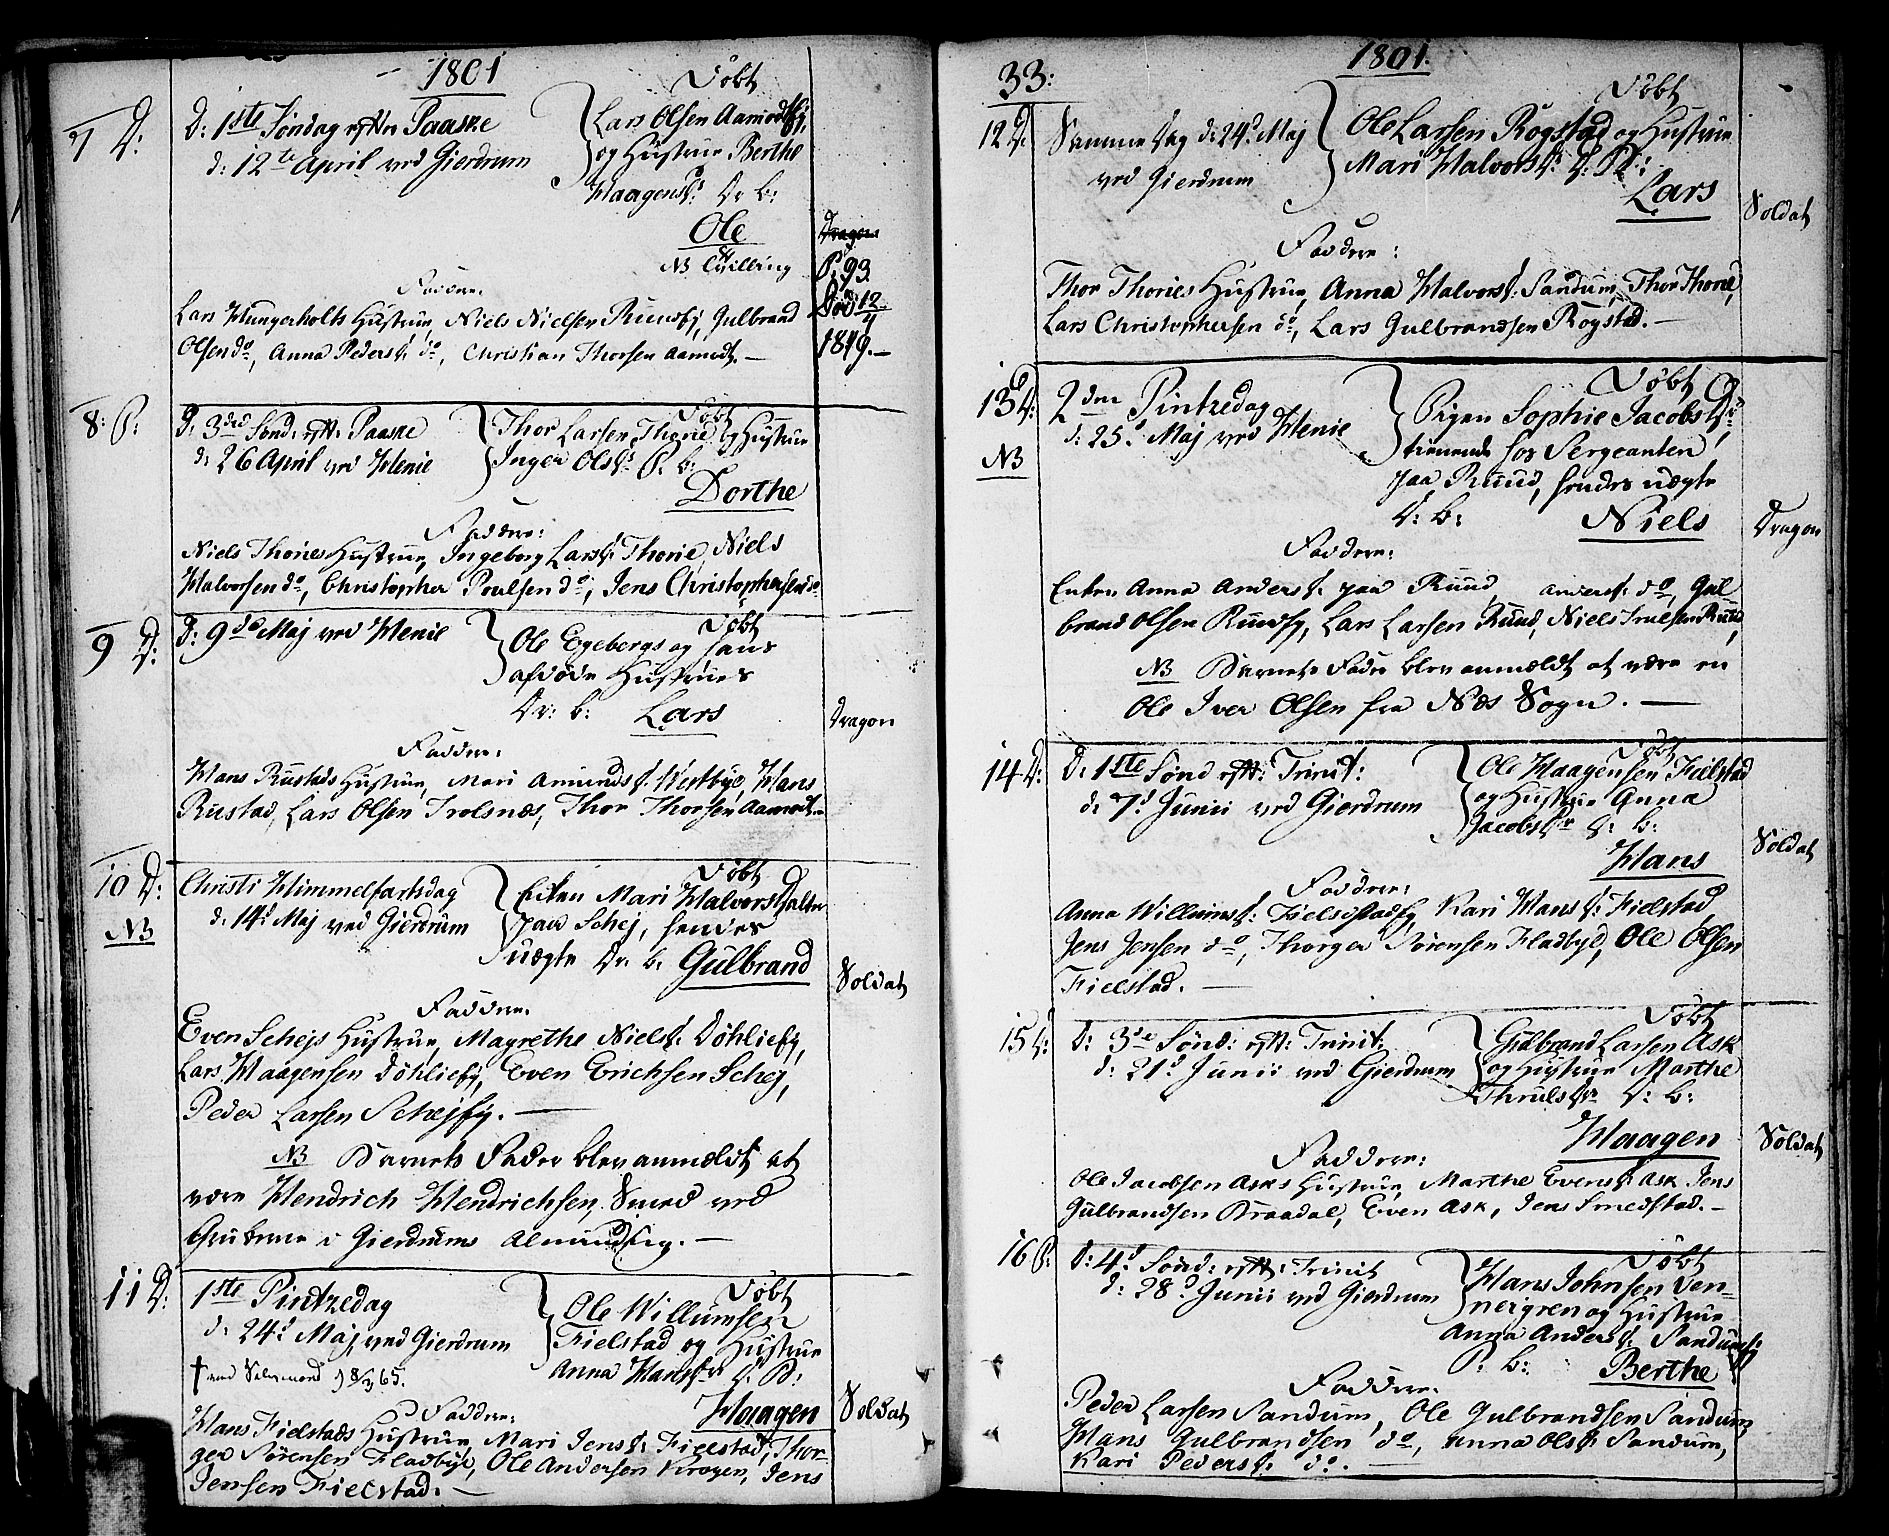 1801
7 D:
D: 1ste Søndag eftter Paaske
d: 12te April ved Gierdrum
Døbt
Lars Olsen Aamodtej,
og Hustrue Berthe
Haagensd: Dr. b:
Ole
NB Tvilling
Dragon
P. 93
Død 12/4
1819.—
Faddere:
Lars Hungerholts Hustrue, Niels Nielsen Ruudej, Gulbrand
Olsen do, Anna Pedersd: do, Christian Thorsen Aamodt.—
8: P:
D: 3die Sønd: eftt: Paaske
d: 26 April ved Henie
Døbt
Thor Larsen Thorie og Hustrue
Inger Olsd: P. b:
Dorthe
Faddere:
Niels Thories Hustrue, Ingeborg Larsd: Thorie, Niels
Halvorsen do, Christopher Poulsen do, Jens Christophersen do
9 D:
D: 9de Maj ved Henie
Døbt
Ole Egebergs og hans
afdøde Hustrues
Dr: b: Lars
Dragon
Faddere:
Hans Rustads Hustrue, Mari Amundsd: Westbye, Hans
Rustad, Lars Olsen Trolsnæs, Thor Thorsen Aamodt.—
10 D:
NB
Christi Himmelfartsdag
d: 14d Maj ved Gierdrum
Døbt
Enken Mari Halvorsdatter
paa Schej, hendes
uægte Dr. b: Gulbrand
Soldat
Faddere.
Even Schejs Hustrue, Magrethe Nielsd: Døhlieej,
Lars Haagensen Døhlieej, Even Erichsen Schej,
Peder Larsen Schejej.—
NB Barnets Fader blev anmældt at
være Hendrich Hendrichsen, Smed ved
Gruberne i Gierdrums Almindsing.—
11 D:
1ste Pintzedag
d: 24d Maj, ved Gierdrum
Døbt
Ole Willumsen
Fielstad og Hustrue
Anna Hansdr D: B:
Haagen
Soldat
Faddere:
Hans Fielstads Hustrue, Mari Jensd: Fielstad, Thor-
ger Sørensen Fladbye, Ole Andersen Krogen, Jens
Jensen Fielstad.—
33:
1801.
12 D:
Samme Dag d: 24d Maj
ved Gierdrum
Døbt
Ole Larsen Rogstad og Hustrue
Mari Halvorsd: D: B:
Lars
Soldat
Faddere:
Thor Thories Hustrue, Anna Halvorsd: Sandum, Thor Thorie,
Lars Christophersen do, Lars Gulbrandsen Rogstad.—
13 D:
NB
2den Pintzedag
d: 25d Maj ved Henie
Døbt
Pigen Sophie Jacobsdr:
tienende hos Sergeanten
paa Ruud, hendes uægte
D: b: Niels
Dragon
Faddere:
Enken Anna Andersd: paa Ruud, Andersd: do, Gul-
brand Olsen Ruudej, Lars Larsen Ruud, Niels Truelsen Ruud,
NB Barnets Fader blev anmældt at være en
Ole Iver Olsen fra Næs Sogn.—
14 D:
D: 1ste Sønd eftt: Trinit:
d: 7d Junii ved Gierdrum
Døbt
Ole Haagensen Fielstad
og Hustrue Anna
Jacobsdr D: b:
Hans
Soldat
Faddere:
Anna Willumsd: Fielsdstadej, Kari Hansd: Fielstad,
Jens Jensen do, Thorger Sørensen Fladbye, Ole Olsen
Fielstad.—
15 D:
D: 3de Sønd: eftt: Trinit:
d: 21d Junii ved Gierdrum
Døbt
Gulbrand Larsen Ask
og Hustrue Marthe
Thrulsdr D: b:
Haagen
Soldat
Faddere:
Ole Jacobsen Asks Hustrue, Marthe Evensd: Ask, Jens
Gulbrandsen Braadal, Even Ask, Jens Smedstad.—
16 P:
D: 4d Sønd: eftt: Trinit
d: 28d Junii ved Gierdrum
Døbt
Hans Johnsen Ven-
nergren og Hustrue
Anna Andersd: Sandumej
P: b: Berthe
Faddere.
Peder Larsen Sandum, Ole Gulbrandsen Sandum,
Hans Gulbrandsen do, Anna Olsd: Sandum,
Kari Pedersd: do.—